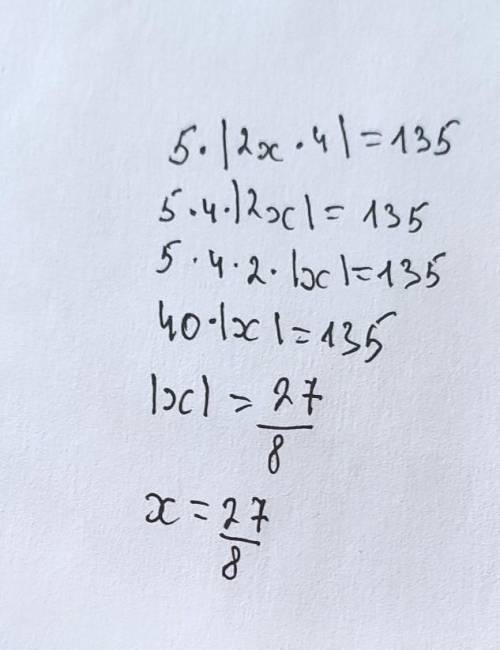 5 · |2x · 4| = 135
5 · 4 · |2x| = 135
5 · 4 · 2 · |x| = 135
40 · |x| = 135
|x| = 27/8
x = 27/8